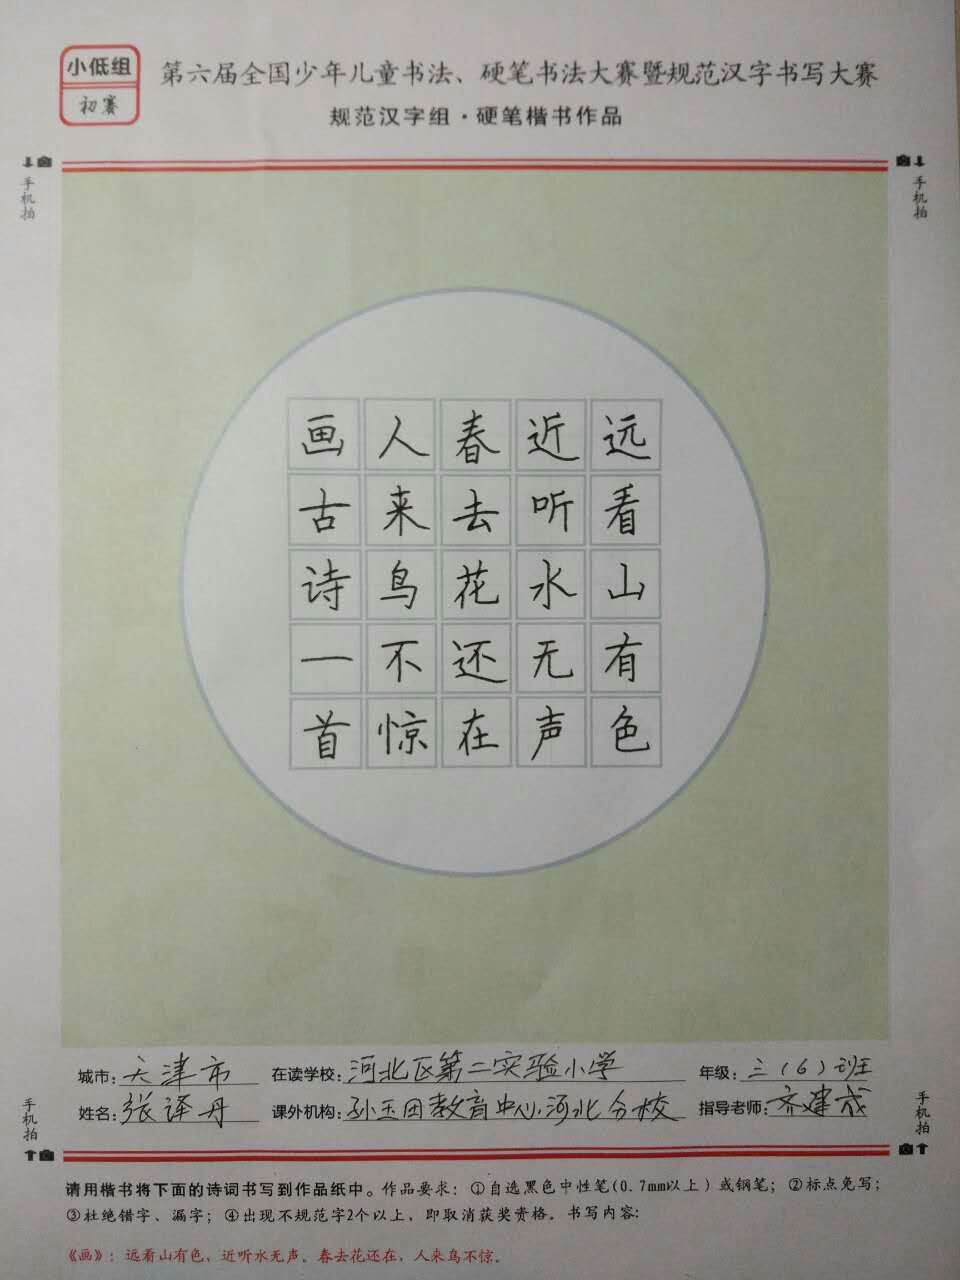 小低组
初赛
第六届全国少年儿童书法、硬笔书法大赛暨规范汉字书写大赛
规范汉字组·硬笔楷书作品
手机拍
手机拍
远看山有色
近听水无声
春去花还在
人来鸟不惊
画古诗一首
城市:天津市 在读学校:河北区第二实验小学 年级:三(6)班
姓名:张译丹 课外机构:孙玉田教育中心河北分校 指导老师:齐建成
手机拍
手机拍
请用楷书将下面的诗词书写到作品纸中。作品要求:①自选黑色中性笔(0.7mm以上)或钢笔;②标点免写;
③杜绝错字、漏字;④出现不规范字2个以上,即取消获奖资格。书写内容:
《画》:远看山有色,近听水无声。春去花还在,人来鸟不惊。